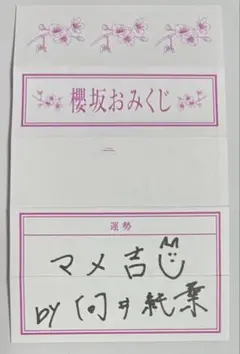 櫻坂おみくじ
運勢
マメ吉
by 向井純葉